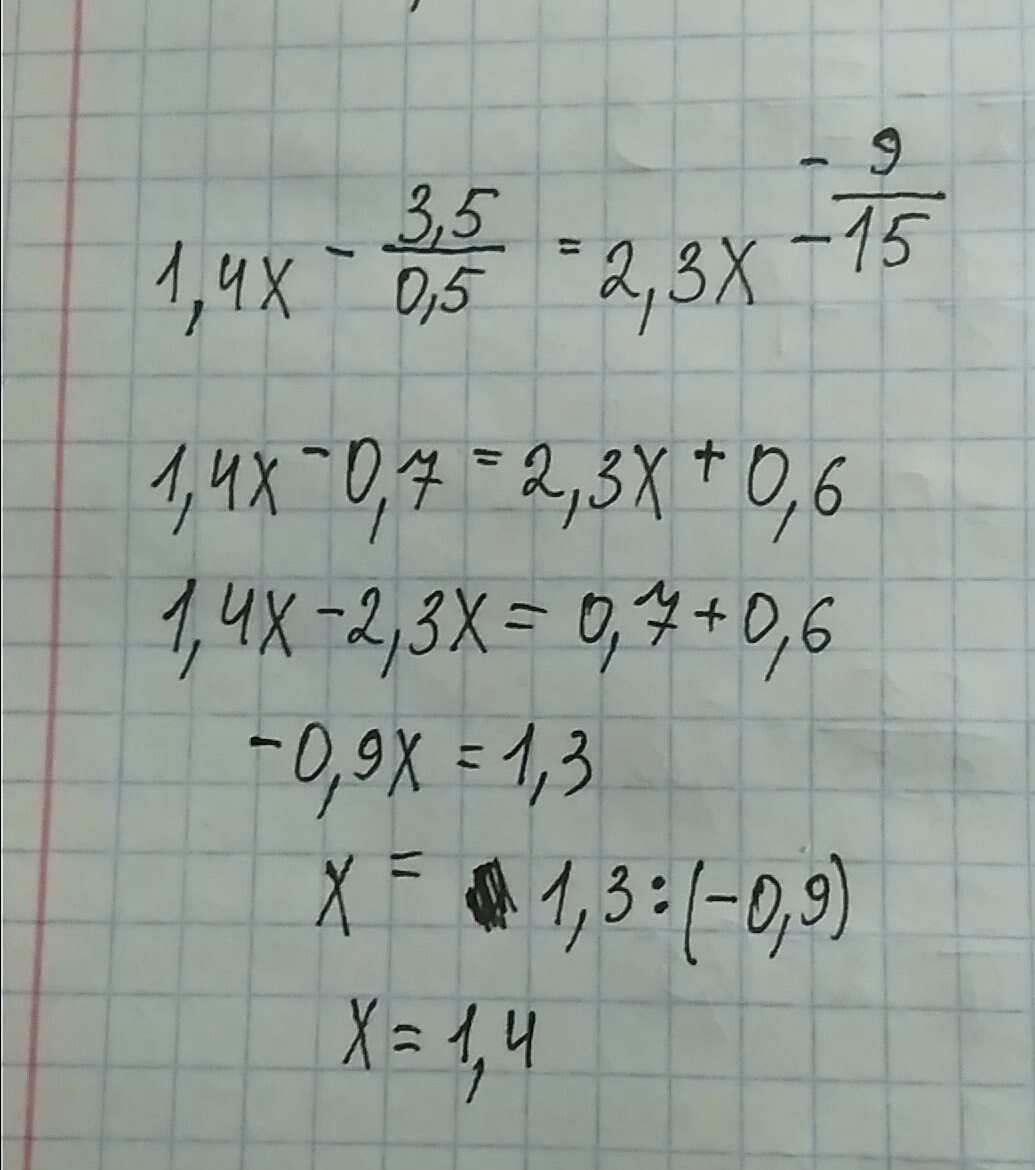 1,4x - 3,5/0,5 = 2,3x - -9/15
1,4x - 0,7 = 2,3x + 0,6
1,4x - 2,3x = 0,7 + 0,6
-0,9x = 1,3
x = 1,3 : (-0,9)
x = 1,4